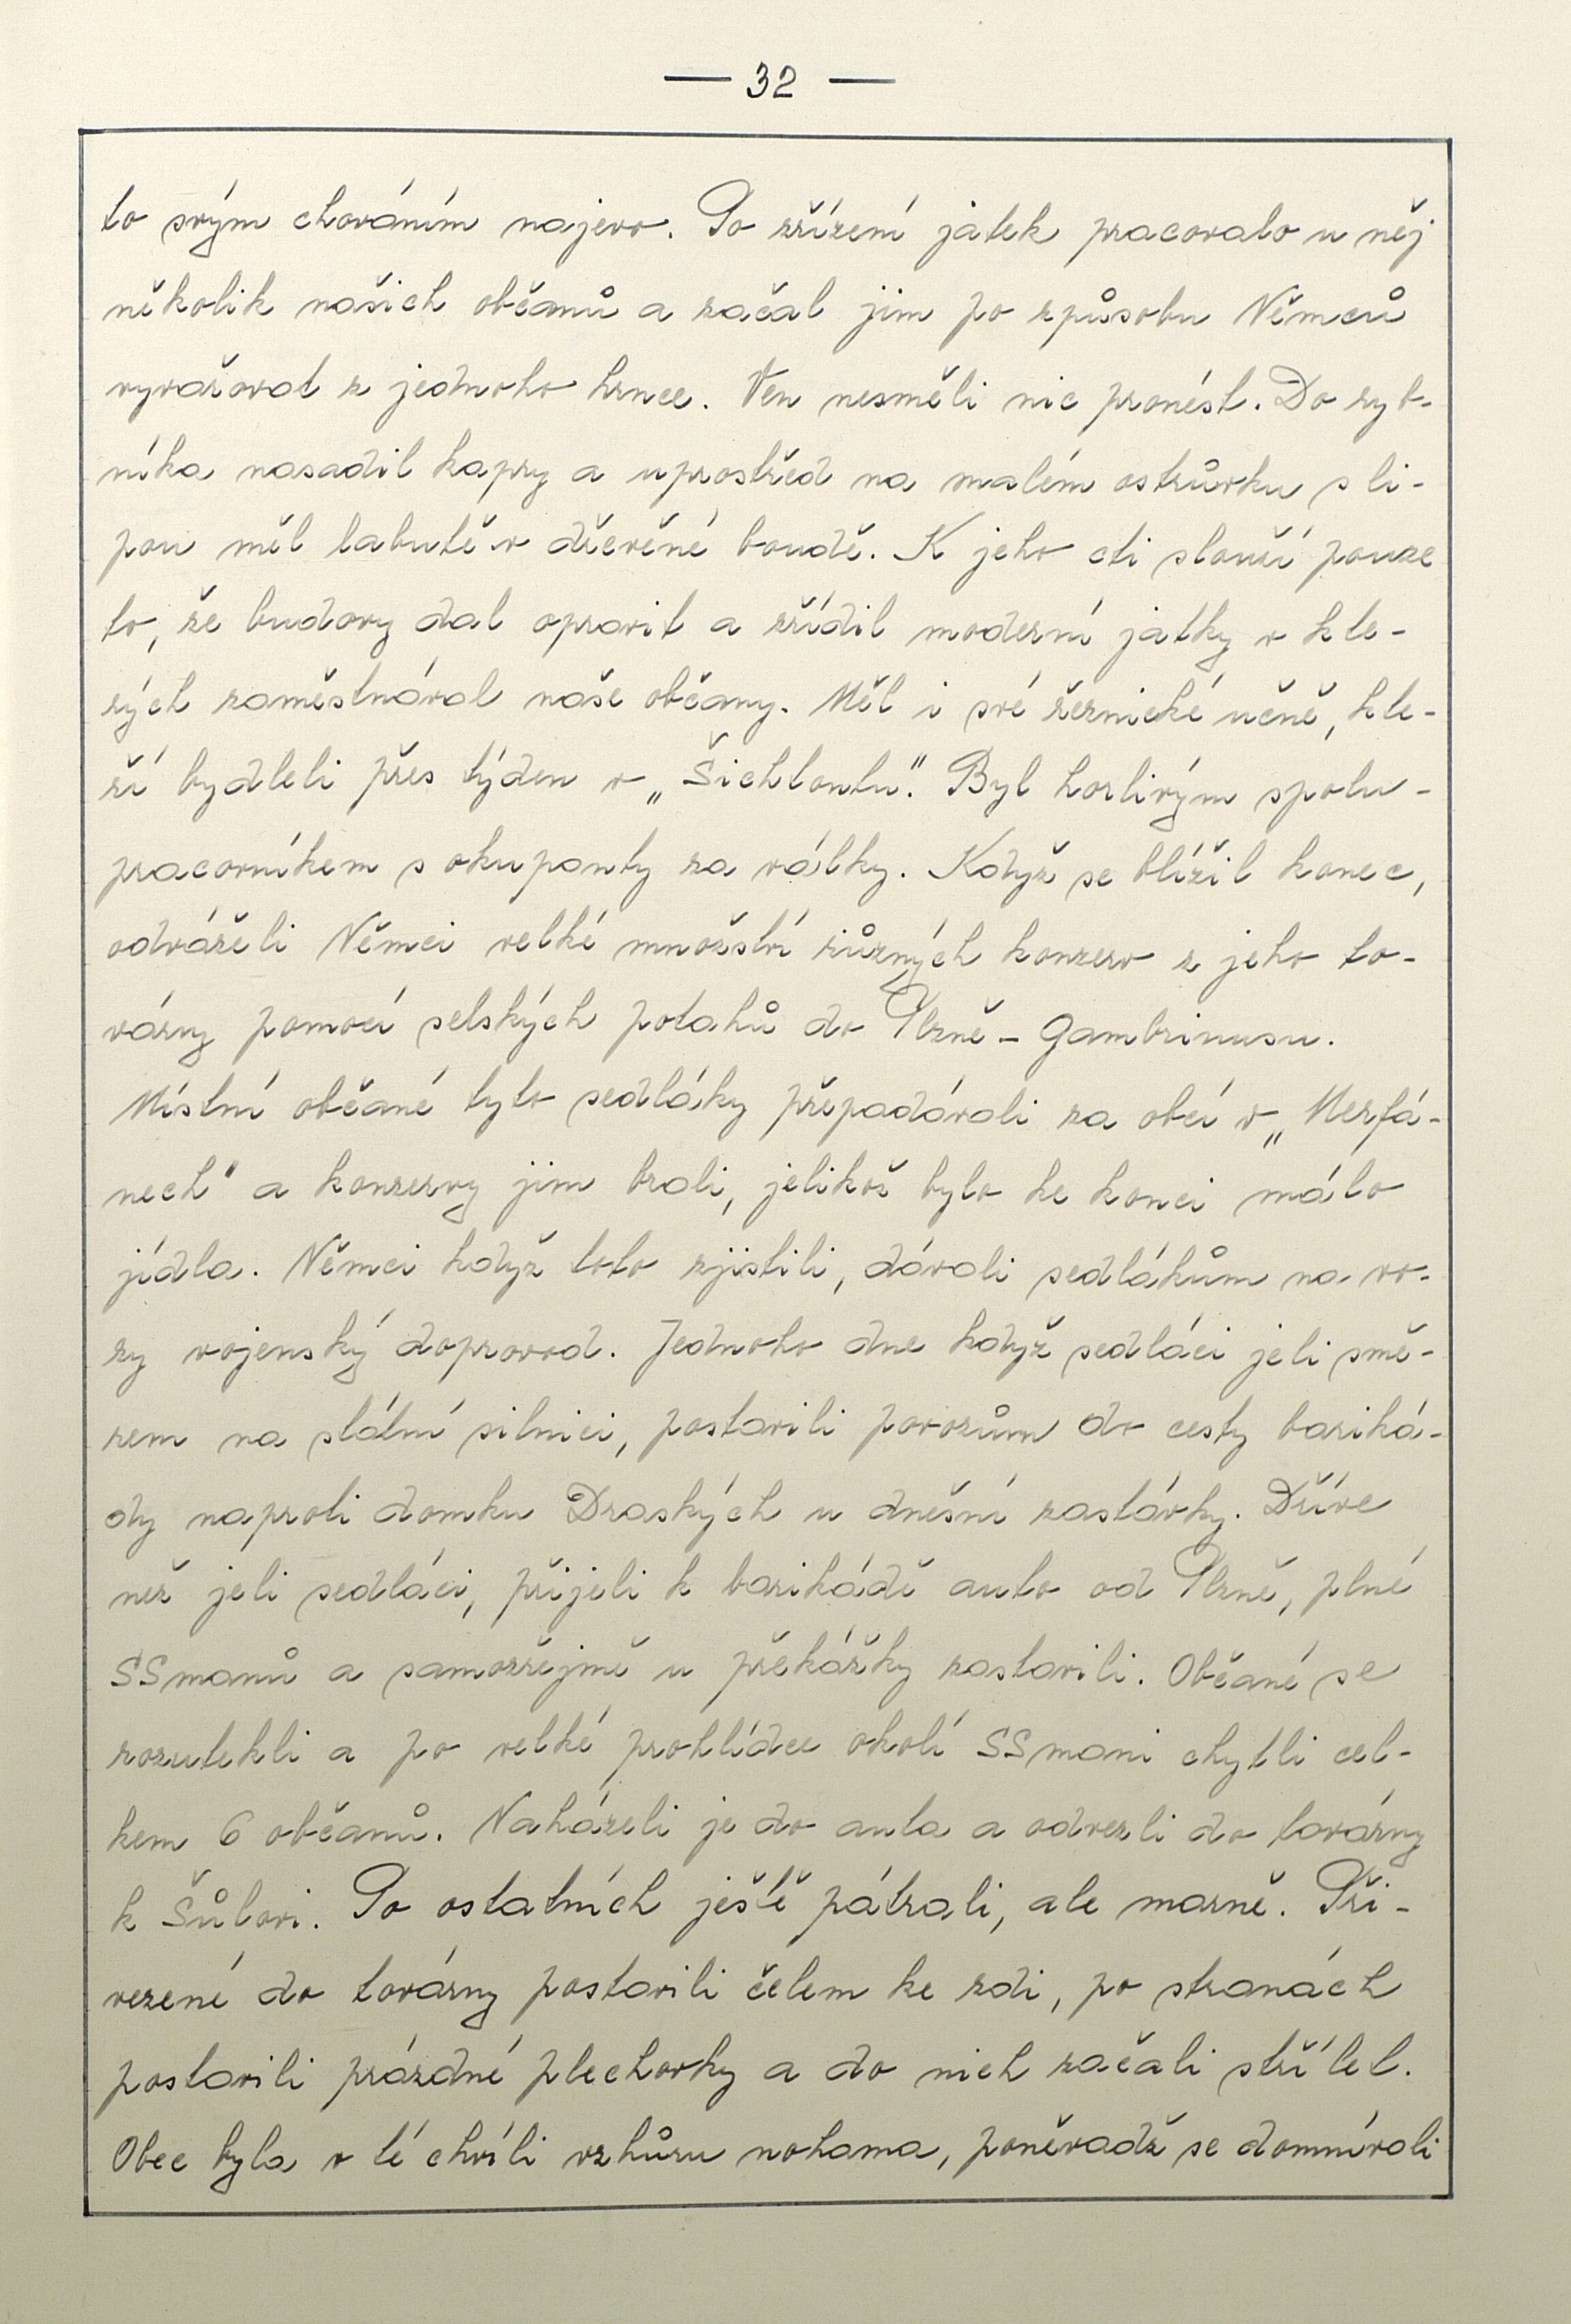 — 32 —
to svým chováním najevo. Po zřízení jatek pracovalo u něj
několik našich občanů a začal jim po způsobu Němců
vyvařovat z jednoho hrnce. Ven nesměli nic pronést. Do ryb-
níka nasadil kapry a uprostřed na malém ostrůvku s li-
pou měl labutě v dřevěné boudě. K jeho cti slouží pouze
to, že budovy dal opravit a zřídil moderní jatky v kte-
rých zaměstnával naše občany. Měl i své řeznické učně, kte-
ří bydleli přes týden v „Šichlontu". Byl horlivým spolu-
pracovníkem s okupanty za války. Když se blížil konec,
odváželi Němci velké množství různých konzerv z jeho to-
várny pomocí selských potahů do Plzně - Gambrinusu.
Místní občané tyto sedláky přepadávali za obcí v „Merfá-
nech" a konzervy jim brali, jelikož bylo ke konci málo
jídla. Němci když toto zjistili, dávali sedlákům na vo-
zy vojenský doprovod. Jednoho dne když sedláci jeli smě-
rem na státní silnici, postavili povozům do cesty bariká-
dy naproti domku Draských u dnešní zastávky. Dříve
než jeli sedláci, přijeli k barikádě auto od Plzně, plné
SSmanů a samozřejmě u překážky zastavili. Občané se
rozutekli a po velké prohlídce okolí SSmani chytli cel-
kem 6 občanů. Naházeli je do auta a odvezli do továrny
k Šůlovi. Po ostatních ještě pátrali, ale marně. Při-
vezené do továrny postavili čelem ke zdi, po stranách
postavili prázdné plechovky a do nich začali střílet.
Obec byla v té chvíli vzhůru nohama, poněvadž se domnívali